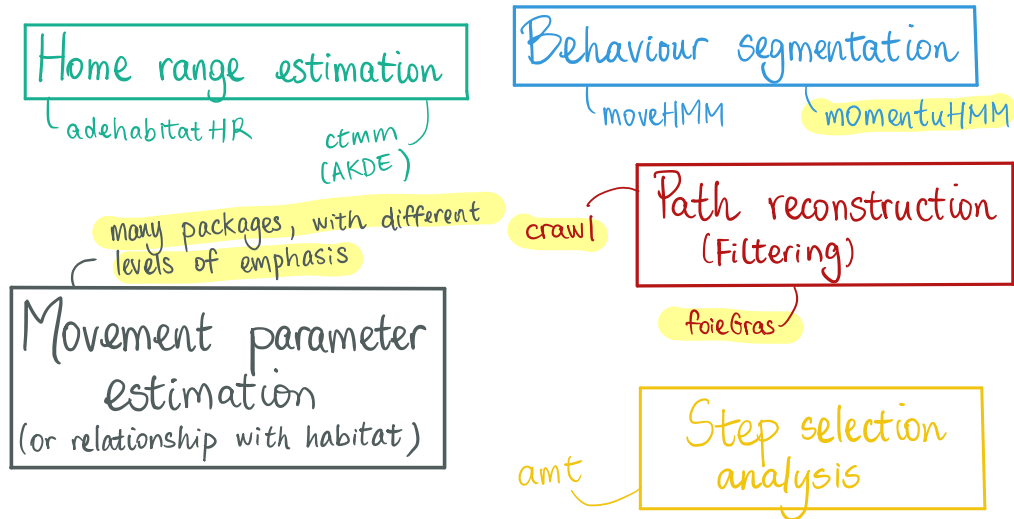 Home range estimation
adehabitatHR
ctmm
(AKDE)
Behaviour segmentation
moveHMM
mOmentuHMM
many packages, with different
levels of emphasis
Movement parameter
estimation
(or relationship with habitat)
Path reconstruction
(Filtering)
crawl
foieGras
Step selection
analysis
amt